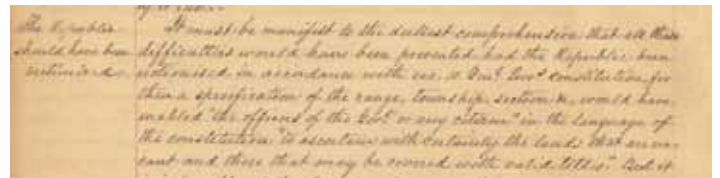 The Republic
should have been
sectionized.
It must be manifest to the dullest comprehension that all these
difficulties would have been prevented had the Republic been
sectionised in accordance with its constitution, for
then a specification of the range, township, section &c, would have
enabled "the officers of the Govt or any citizen" in the language of
the constitution "to ascertain with certainty the lands that are va-
cant and those that may be covered with valid titles". But it